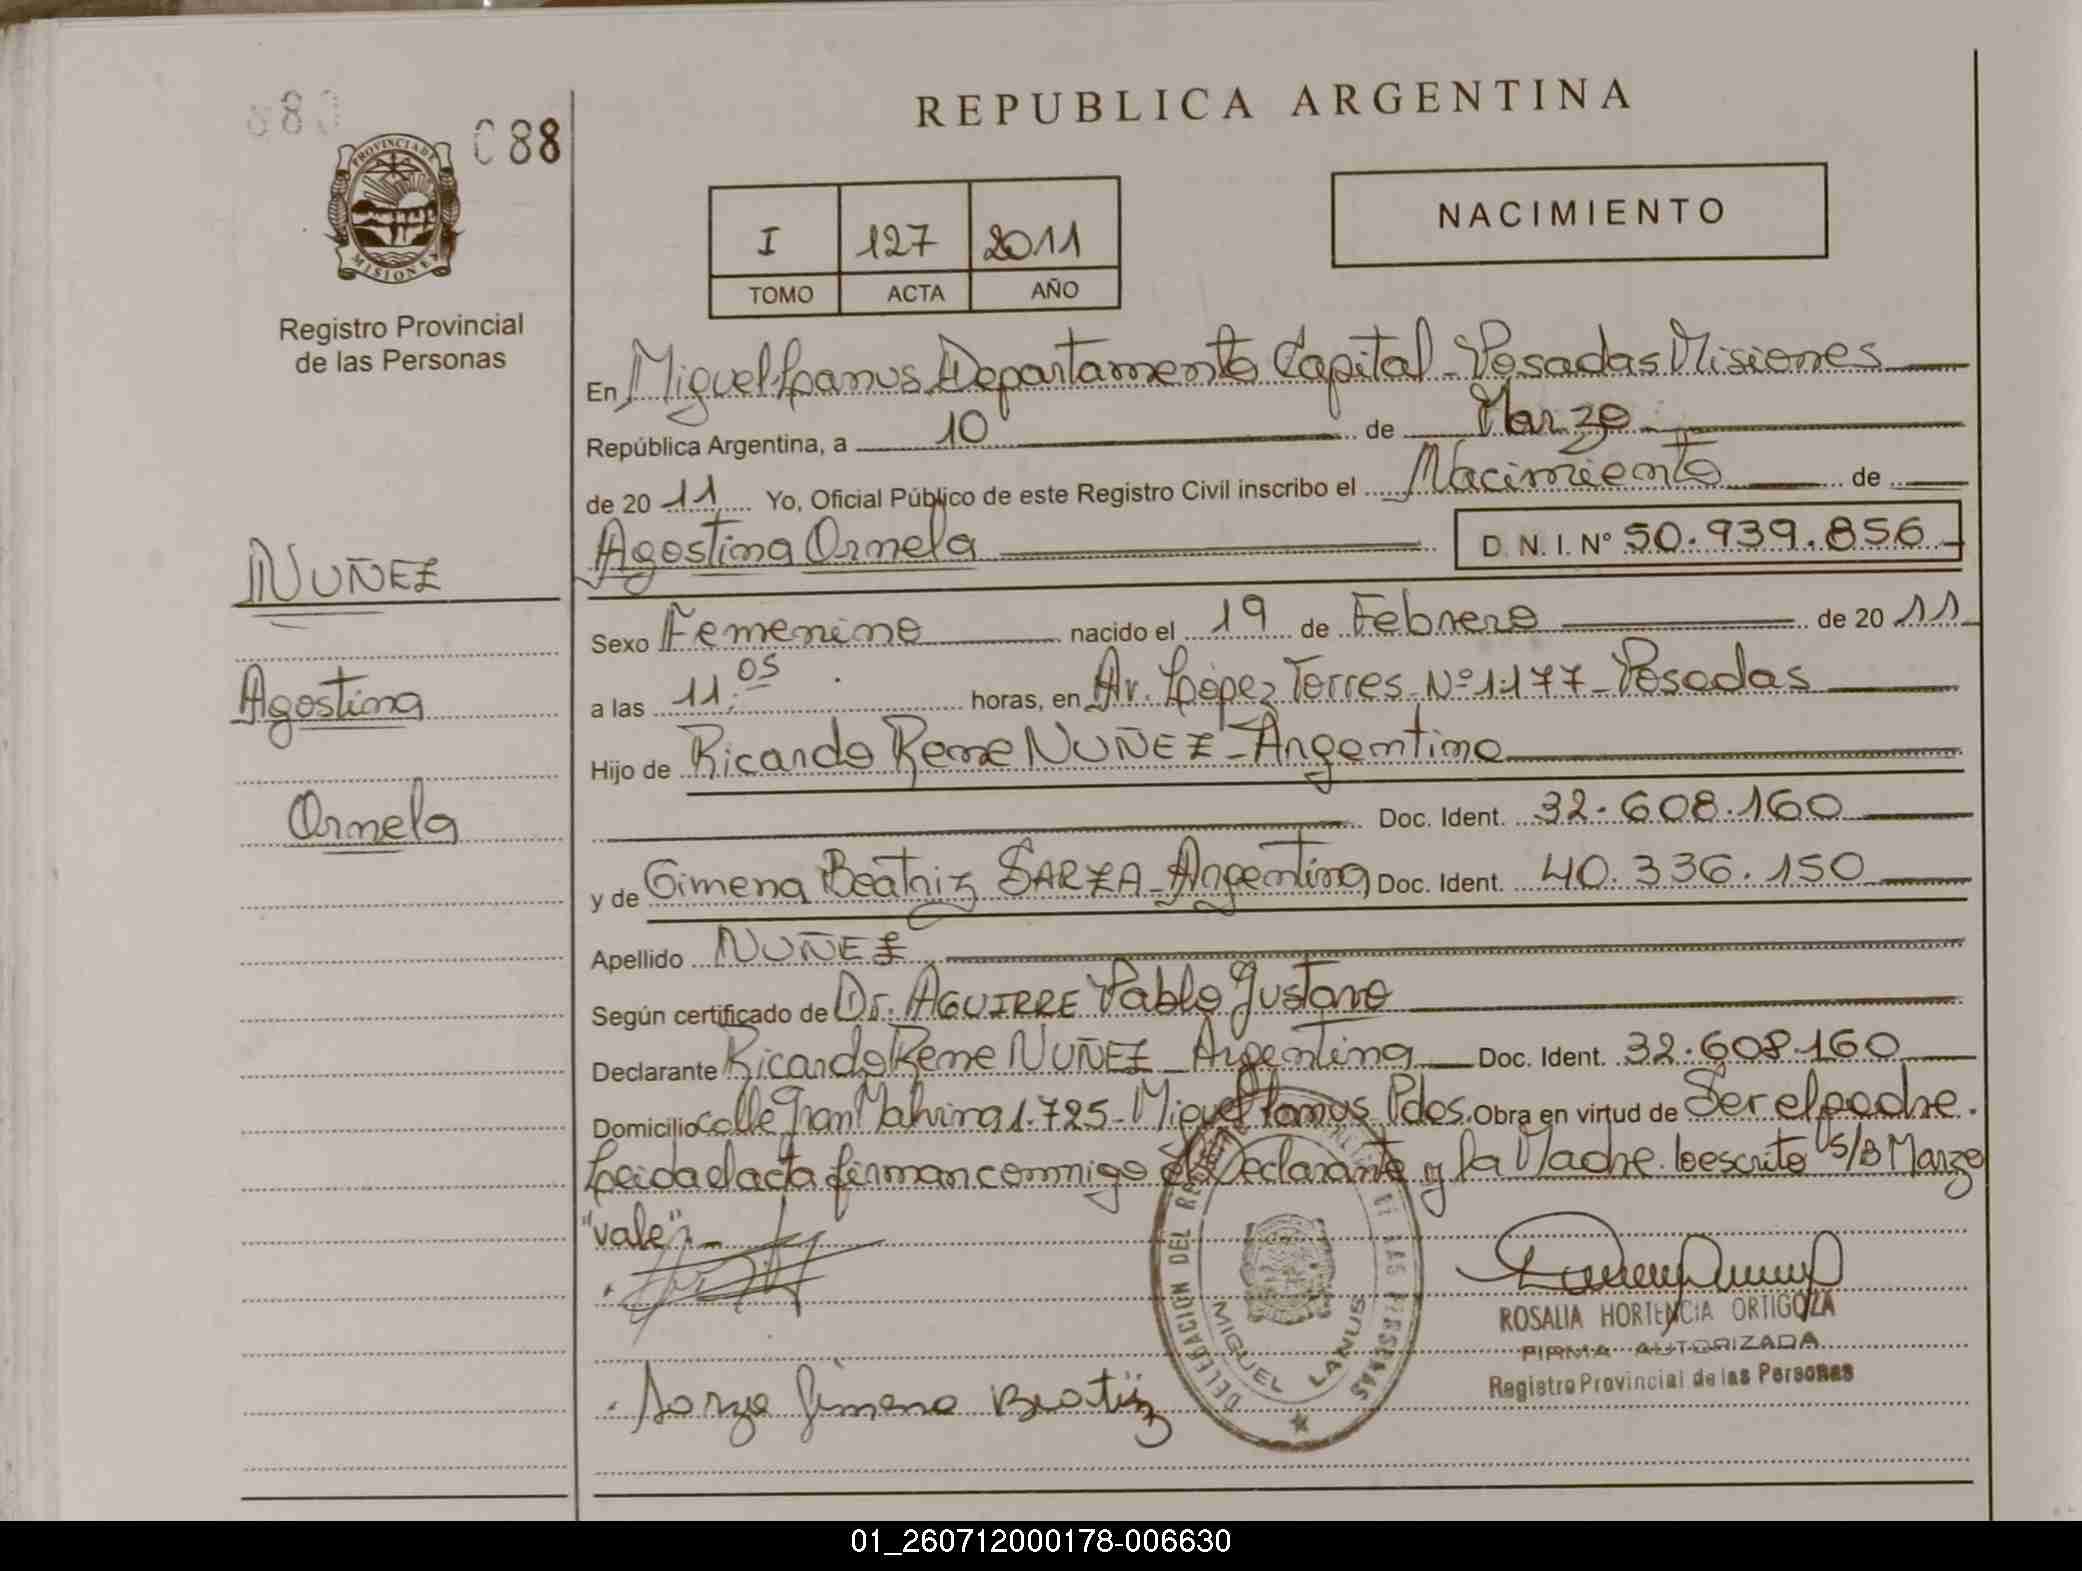 REPUBLICA ARGENTINA
088
PROVINCIA DE MISIONES
Registro Provincial
de las Personas
I 127 2011
TOMO ACTA AÑO
NACIMIENTO
En Miguel Lanus Departamento Capital - Posadas Misiones
República Argentina, a 10 de Marzo
de 2011 Yo, Oficial Público de este Registro Civil inscribo el Nacimiento de
Agostina Ornela D. N. I. Nº 50.939.856
NUÑEZ
Agostina
Ornela
Sexo Femenino nacido el 19 de Febrero de 2011
a las 11:05 horas, en Av. López Torres Nº 1177 - Posadas
Hijo de Ricardo Rene NUÑEZ - Argentino
Doc. Ident. 32.608.160
y de Gimena Beatriz SARZA - Argentina Doc. Ident. 40.336.150
Apellido NUÑEZ
Según certificado de Dr. AGUIRRE Pablo Gustavo
Declarante Ricardo Rene NUÑEZ - Argentina Doc. Ident. 32.608.160
Domicilio calle Gran Malvina 1.725 - Miguel Lanus Pdas. Obra en virtud de Ser el padre.
Leida el acta firman conmigo el Declarante y la Madre. lo escrito S/B Marzo
"vale".-
DELEGACION DEL REGISTRO DE LAS PERSONAS
MIGUEL LANUS
ROSALIA HORTENCIA ORTIGOZA
FIRMA AUTORIZADA
Registro Provincial de las Personas
Sarza Gimena Beatriz
01_260712000178-006630